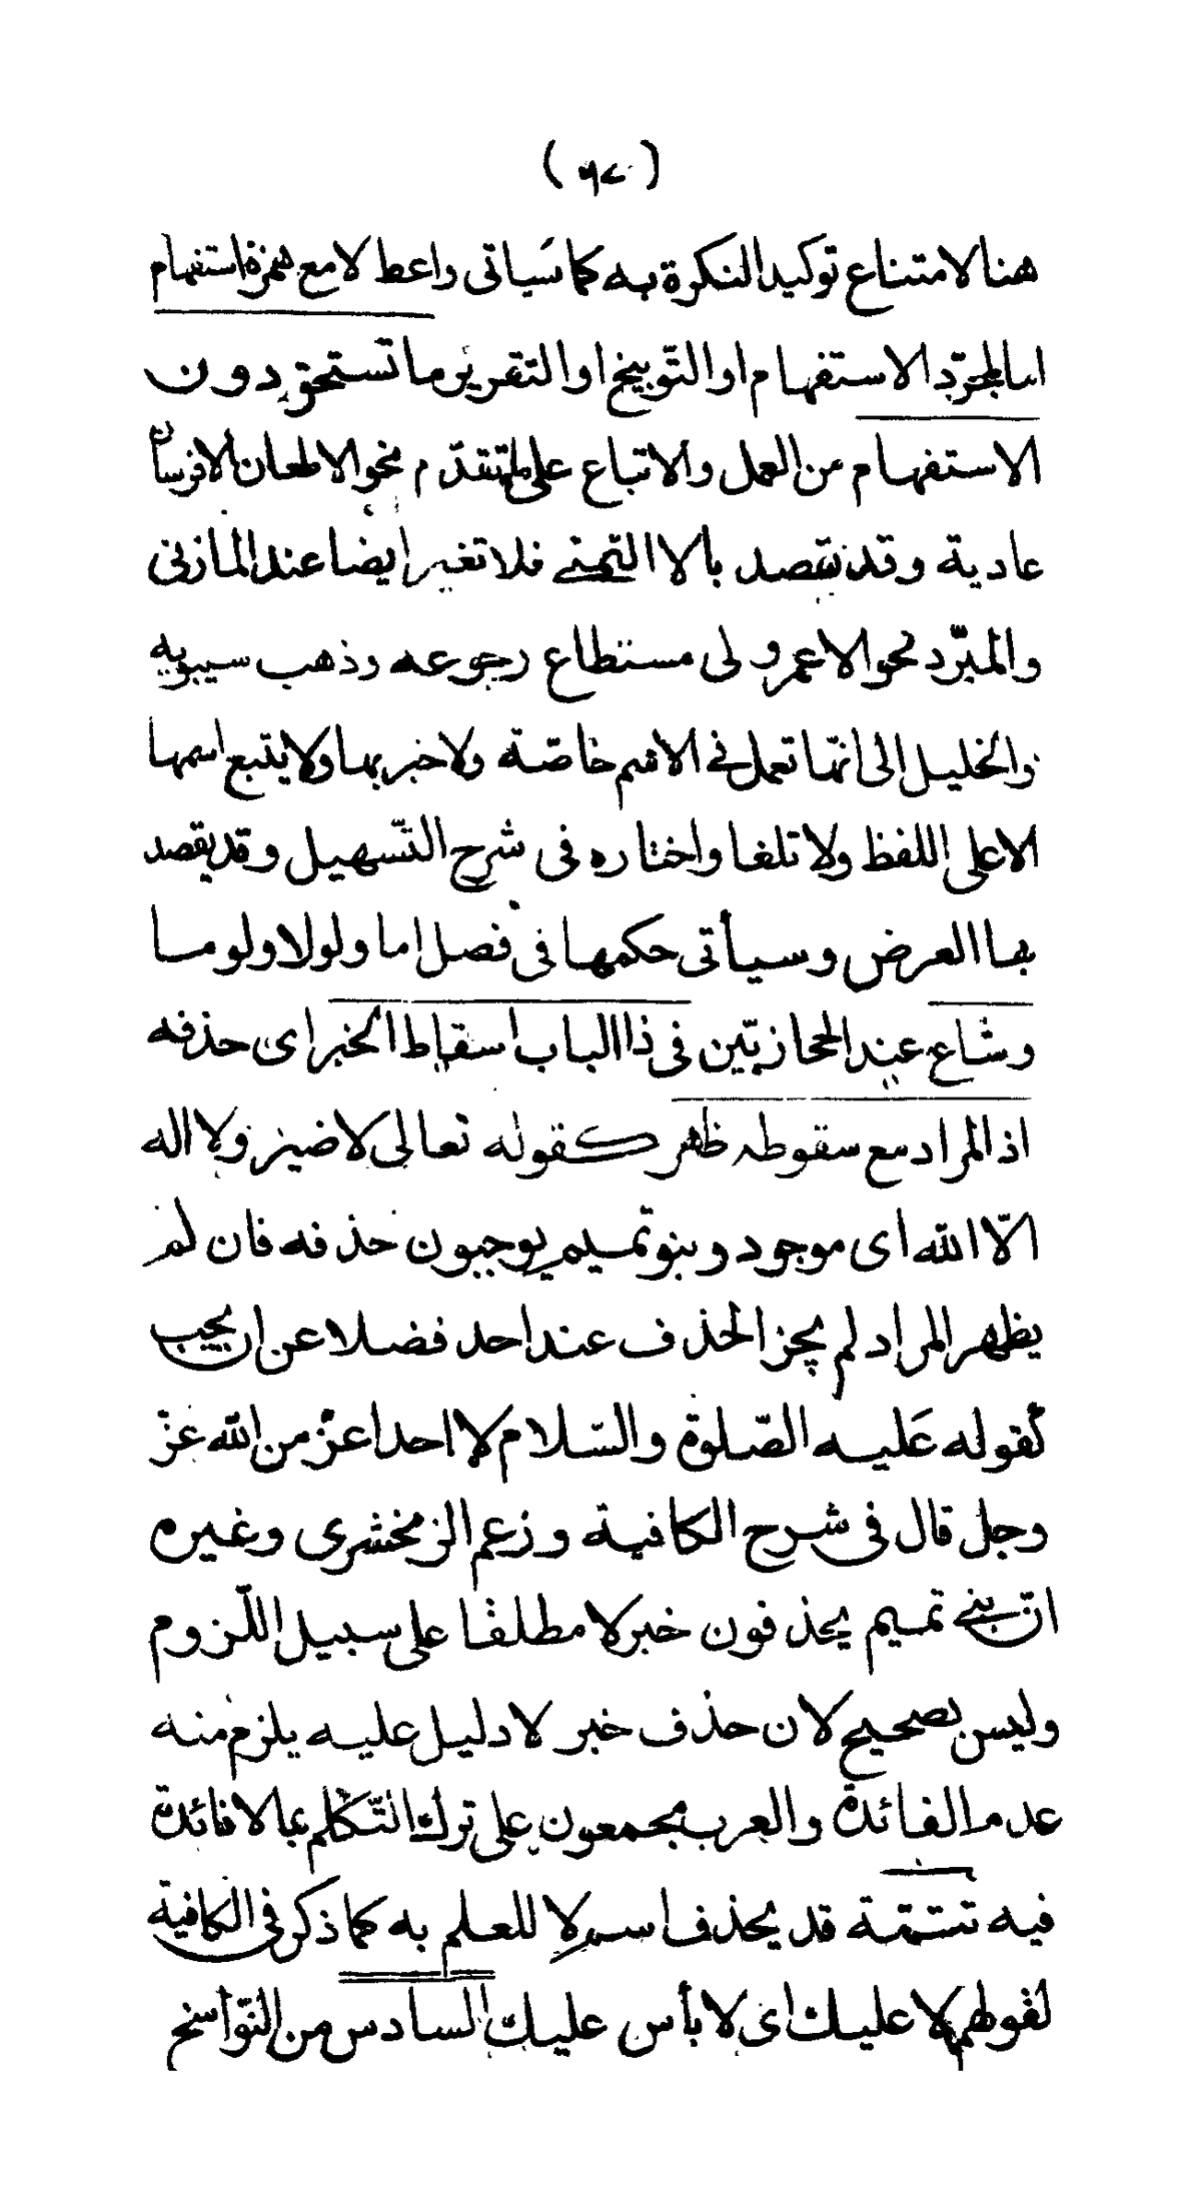 ( ٩٨ )
هنا لامتناع توكيد النكرة به كما سَياتى واعط لا مع همزة استفهام
اما لمجرّد الاستفهام او التّوبيخ او التقرير ما تستحق دون
الاستفهام من العمل والاتباع على ما تقدّم نحو الا طعان الا فرسان
عادية وقد تقصد بالا التمنے فلا تغير ايضا عند المازنى
والمبرّد نحو الا عمرو لى مستطاع رجوعه وذهب سيبويه
والخليل الى انّها تعمل فے الاسم خاصّة ولا خبر لها ولا يتبع اسمها
الا على اللفظ ولا تلغا واختاره فى شرح التّسهيل وقد يقصد
بها العرض وسيأتى حكمها فى فصل اما ولولا ولو ما
وشاع عند الحجازيّين فى ذا الباب اسقاط الخبر اى حذفه
اذ المراد مع سقوطه ظهر كقوله تعالى لا ضير ولا اله
الّا الله اى موجود وبنو تميم يوجبون حذفه فان لم
يظهر المراد لم يجز الحذف عند احد فضلا عن ان يجب
كقوله عَليه الصّلوة والسّلام لا احد اعزّ من الله عزّ
وجل قال فى شرح الكافية وزعم الزمخشرى وغيره
انّ بنے تميم يحذفون خبر لا مطلقا على سبيل اللّزوم
وليس بصحيح لان حذف خبر لا دليل عليه يلزم منه
عدم الفائدة والعرب مجمعون على ترك التّكلم بما لا فائدة
فيه تتمّة قد يحذف اسم لا للعلم به كما ذكر فى الكافية
كقولهم لا عليك اى لا بأس عليك السادس من النّواسخ